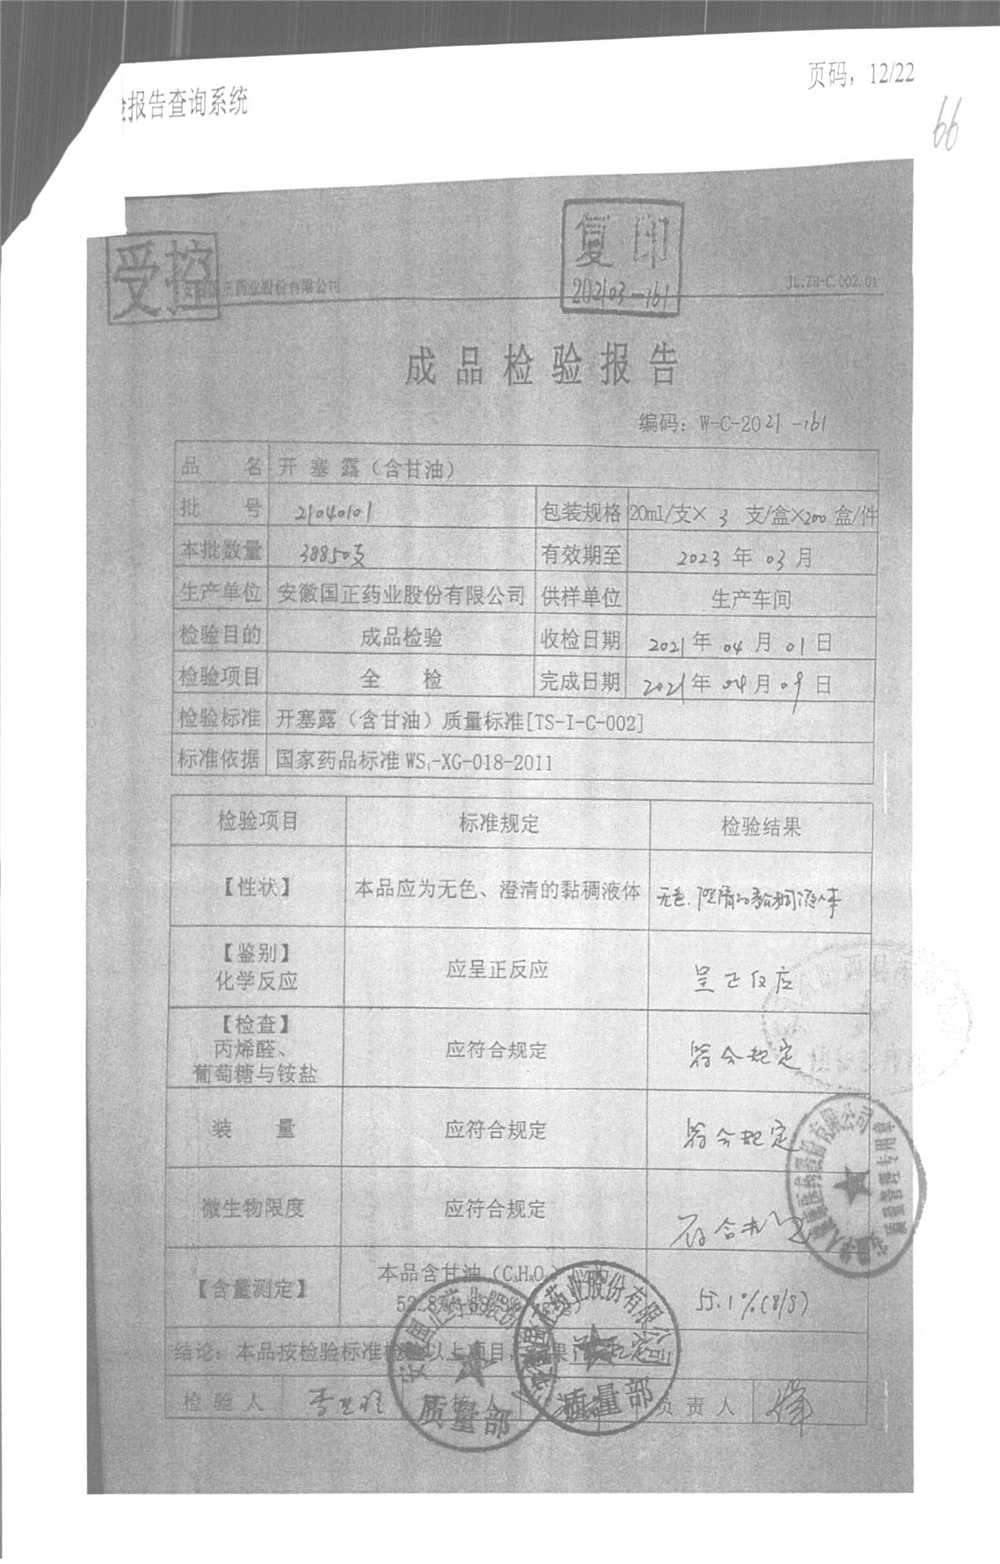 报告查询系统
页码，12/22
66
受控
复印
202103-161
正药业股份有限公司
JL:ZH-C.002.01
成品检验报告
编码：W-C-2021-161
品 名 开塞露（含甘油）
批 号 21040101 包装规格 20ml/支× 3 支/盒×200 盒/件
本批数量 38850支 有效期至 2023 年 03 月
生产单位 安徽国正药业股份有限公司 供样单位 生产车间
检验目的 成品检验 收检日期 2021 年 04 月 01 日
检验项目 全 检 完成日期 2021 年 04 月 09 日
检验标准 开塞露（含甘油）质量标准[TS-I-C-002]
标准依据 国家药品标准 WS₁-XG-018-2011
检验项目 标准规定 检验结果
【性状】 本品应为无色、澄清的黏稠液体 无色、澄清的黏稠液体
【鉴别】
化学反应 应呈正反应 呈正反应
【检查】
丙烯醛、
葡萄糖与铵盐 应符合规定 符合规定
装 量 应符合规定 符合规定
微生物限度 应符合规定 符合规定
【含量测定】 本品含甘油（C₃H₈O₃） 55.1%(g/g)
结论：本品按检验标准检验以上项目 结果
检验人 人 负责人
质量部
质量部